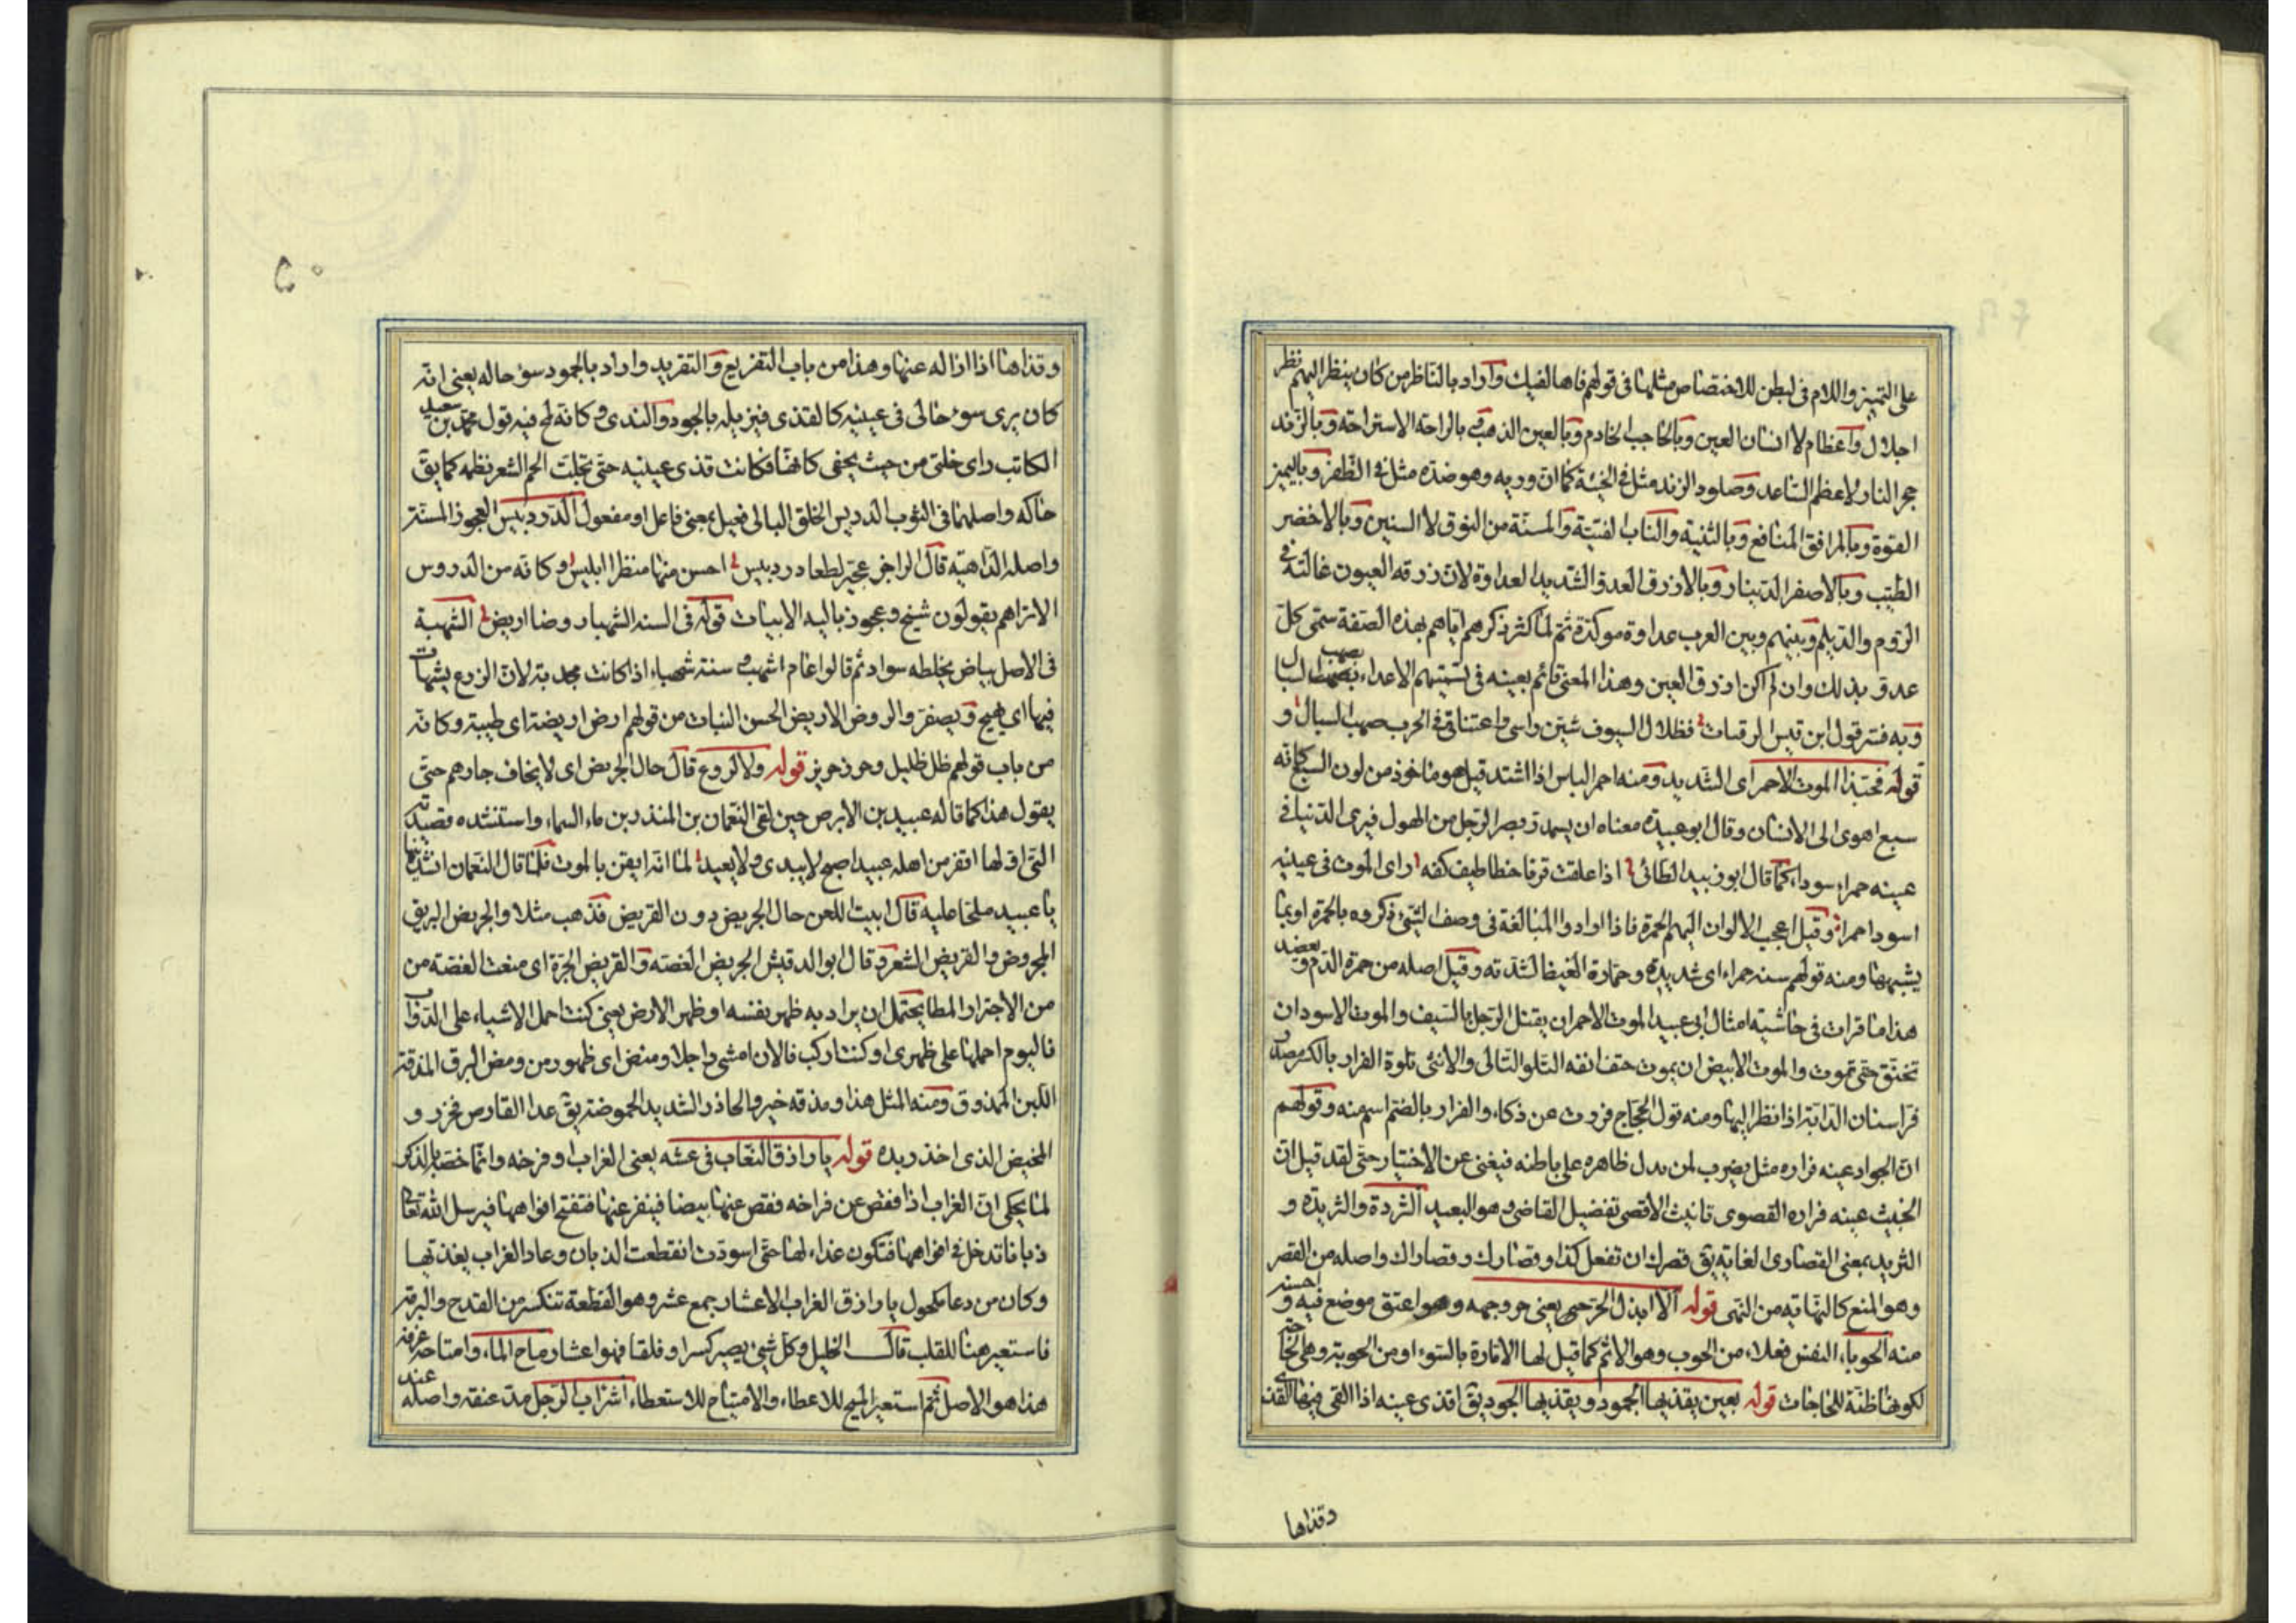 على التمييز واللام فى لبطن للاختصاص مثلها فى قولهم فاها لفيك واراد بالناظر من كان ينظر اليهم نظر
اجلال واعظام لا انسان العين وبالحاجب الخادم وبالعين الذهب بالراحة الاستراحة وبالزند
حجر النار لا عظم الساعد وصلود الزند مثل فى الخيبة كما ان وريه وهو ضده مثل فى الظفر وباليمين
القوة وبالمرافق المنافع وبالثنية والناب الفتية والمسنة من النوق لا السنين وبالاخضر
الطيب وبالاصفر الدينار وبالازرق العدو الشديد العداوة لان زرقة العيون غالبة فى
الروم والديلم وبينهم وبين العرب عداوة موكدة ثم لما كثر ذكرهم اياهم بهذه الصفة سمى كل
عدو بذلك وان لم يكن ازرق العين وهذا المعنى قائم بعينه فى تسميتهم الاعداء بصهب السبال
وبه فسر قول ابن قيس الرقيات فظلال السيوف شيبن راسى واعتناقى فى الحرب صهب السبال و
قوله فحبذا الموت الاحمر اى الشديد ومنه احمر الباس اذا اشتد قيل هو ماخوذ من لون السبع كانه
سبع اهوى الى الانسان وقال ابو عبيدة معناه ان يسمدر بصر الرجل من الهول فيرى الدنيا فى
عينه حمراء سوداء كما قال ابو زبيد الطائى اذا علقت قرنا خطاطيف كفه راى الموت فى عينيه
اسود احمرا وقيل اعجب الالوان اليهم الحمرة فاذا ارادوا المبالغة فى وصف الشىء ذكروه بالحمرة او بما
يشبهها ومنه قولهم سنه حمراء اى شديدة وحمارة الغيظ لشدته وقيل اصله من حمرة الدم وبعضد
هذا ما قرات فى حاشية امثال ابى عبيد الموت الاحمر ان يقتل الرجل بالسيف والموت الاسود ان
تختنق حتى تموت والموت الابيض ان يموت حتف انفه التلو التالى والانثى تلوة الفرار بالكسر مصدر
فر اسنان الدابة اذا نظر اليها ومنه قول الحجاج فررت عن ذكاء والفرار بالضم اسم منه وقولهم
ان الجواد عينه فراره مثل يضرب لمن يدل ظاهره على باطنه فيغنى عن الاختيار حتى لقد قيل ان
الخبيث عينه فراره القصوى تانيث الاقصى تفضيل القاضى وهو البعيد الثردة والثريدة و
الثريد بمعنى القصارى الغاية يق قصرك ان تفعل كذا وقصارك وقصاراك واصله من القصر
وهو المنع كالنهاية من النهى قوله الا ابذل الحر حى يعنى حر وجهه وهو اعتق موضع فيه واحسنه
منه الحوباء النفس فعلاء من الحوب وهو الاثم كما قيل لها الامارة بالسوء او من الحوبة وهى الحاجة
لكونها ظنة للحاجات قوله بعين يقذيها الجمود ويقذيها الجود يق اقذى عينه اذا القى فيها القذى
وقذاها
٥٠
وقذاها اذا ازاله عنها وهذا من باب التفزيع والتقريد واراد بالجمود سوء حاله يعنى انه
كان يرى سوء حالى فى عينيه كالقذى فيزيله بالجود والندى وكانه لمح فيه قول محمد بن سعيد
الكاتب راى خلتى من حيث يخفى مكانها فكانت قذى عينيه حتى تجلت الحم الشعر نظمه كما يق
حاكه واصلهما فى الثوب الدريس الخلق البالى فعيل بمعنى فاعل او مفعول الدردبيس العجوز المسنة
واصله الداهية قال الراجز عجيز لطعا دردبيس احسن منها منظرا ابليس وكانه من الدروس
الا تراهم يقولون شيخ وعجوز بالية الابيات قوله فى السنه الشهباء روضا اريضا الشهبة
فى الاصل بياض يخلطه سواد ثم قالوا عام اشهب وسنة شهباء اذا كانت مجدبة لان الزرع يشهاب
فيها اى يهيج ويصفر والروض الاريض الحسن النبات من قولهم ارض اريضة اى طيبة وكانه
من باب قولهم ظل ظليل وحرز حريز قوله ولا لروع قال حال الجريض اى لا يخاف جارهم حتى
يقول هذا كما قاله عبيد بن الابرص حين لقى النعمان بن المنذر بن ماء السماء واستنشده قصيدته
التى اولها اقفر من اهله عبيد اصبح لا يبدى ولا يعيد لما انه ايقن بالموت فلما قال النعمان انشدنا
يا عبيد ملحا عليه قال ابيت اللعن حال الجريض دون القريض فذهب مثلا والجريض الريق
المجروض والقريض الشعر وقال ابو الدقيش الجريض الغصة والقريض الجرة اى منعت الغصة من
من الاجترار المطا يحتمل ان يراد به ظهر نفسه او ظهر الارض يعنى كنت احمل الاشياء على الدواب
فاليوم احملها على ظهرى او كنت اركب فالان امشى راجلا ومنض اى ظهور من ومض البرق المذقة
اللبن الممذوق ومنه المثل هذا ومذقه خير والحاذر الشديد الحموضة يق عدا القارص فحزر و
المخيض الذى اخذ زبده قوله يا رازق النعاب فى عشه يعنى الغراب او فرخه وانما خصه بالذكر
لما يحكى ان الغراب اذا فقص عن فراخه فقص عنها بيضا فينفر عنها فتفتح افواهها فيرسل الله تعالى
ذبابا تدخل فى افواهها فتكون غذاء لها حتى اسودت انقطعت الذبان وعاد الغراب يغذيها
وكان من دعا مكحول يا رازق الغراب الاعشار جمع عشر وهو القطعة تنكسر من القدح والبرمة
فاستعير هنا للقلب قال الخليل وكل شىء يصير كسرا وفلقا فهو اعشار ماح الماء وامتاحه غرفه
هذا هو الاصل ثم استعير الميح للاعطاء والامتياح للاستعطاء اشراب الرجل مد عنقه واصله عند